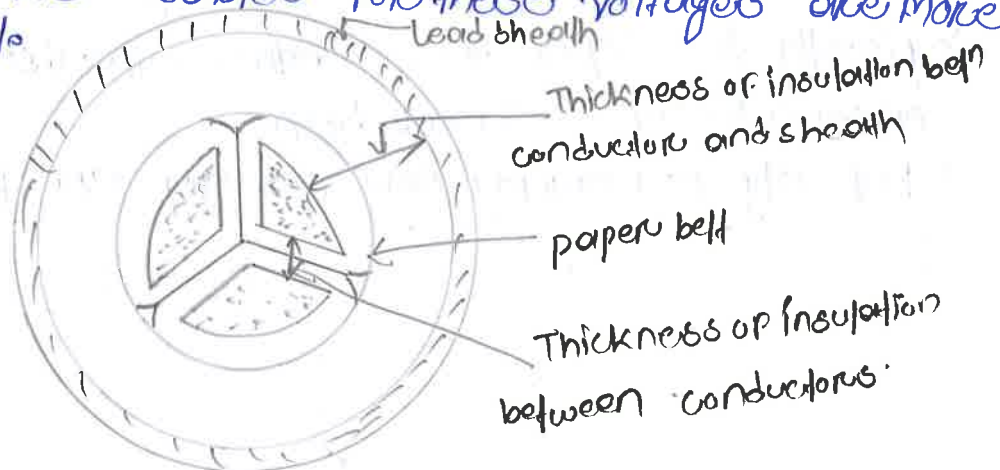 cables voltages are more
Lead sheath
Thickness of insulation betn
conductor and sheath
paper belt
Thickness of insulation
between conductors.